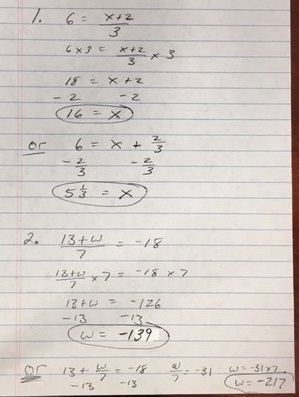 1. 6 = x+2/3
6x3 = x+2/3 x 3
18 = x+2
-2 -2
16 = x
or 6 = x + 2/3
-2/3 -2/3
5 1/3 = x
2. 13+w/7 = -18
13+w/7 x7 = -18 x7
13+w = -126
-13 -13
w = -139
or 13 + w/7 = -18 w/7 = -31 w = -31x7
-13 -13 w = -217